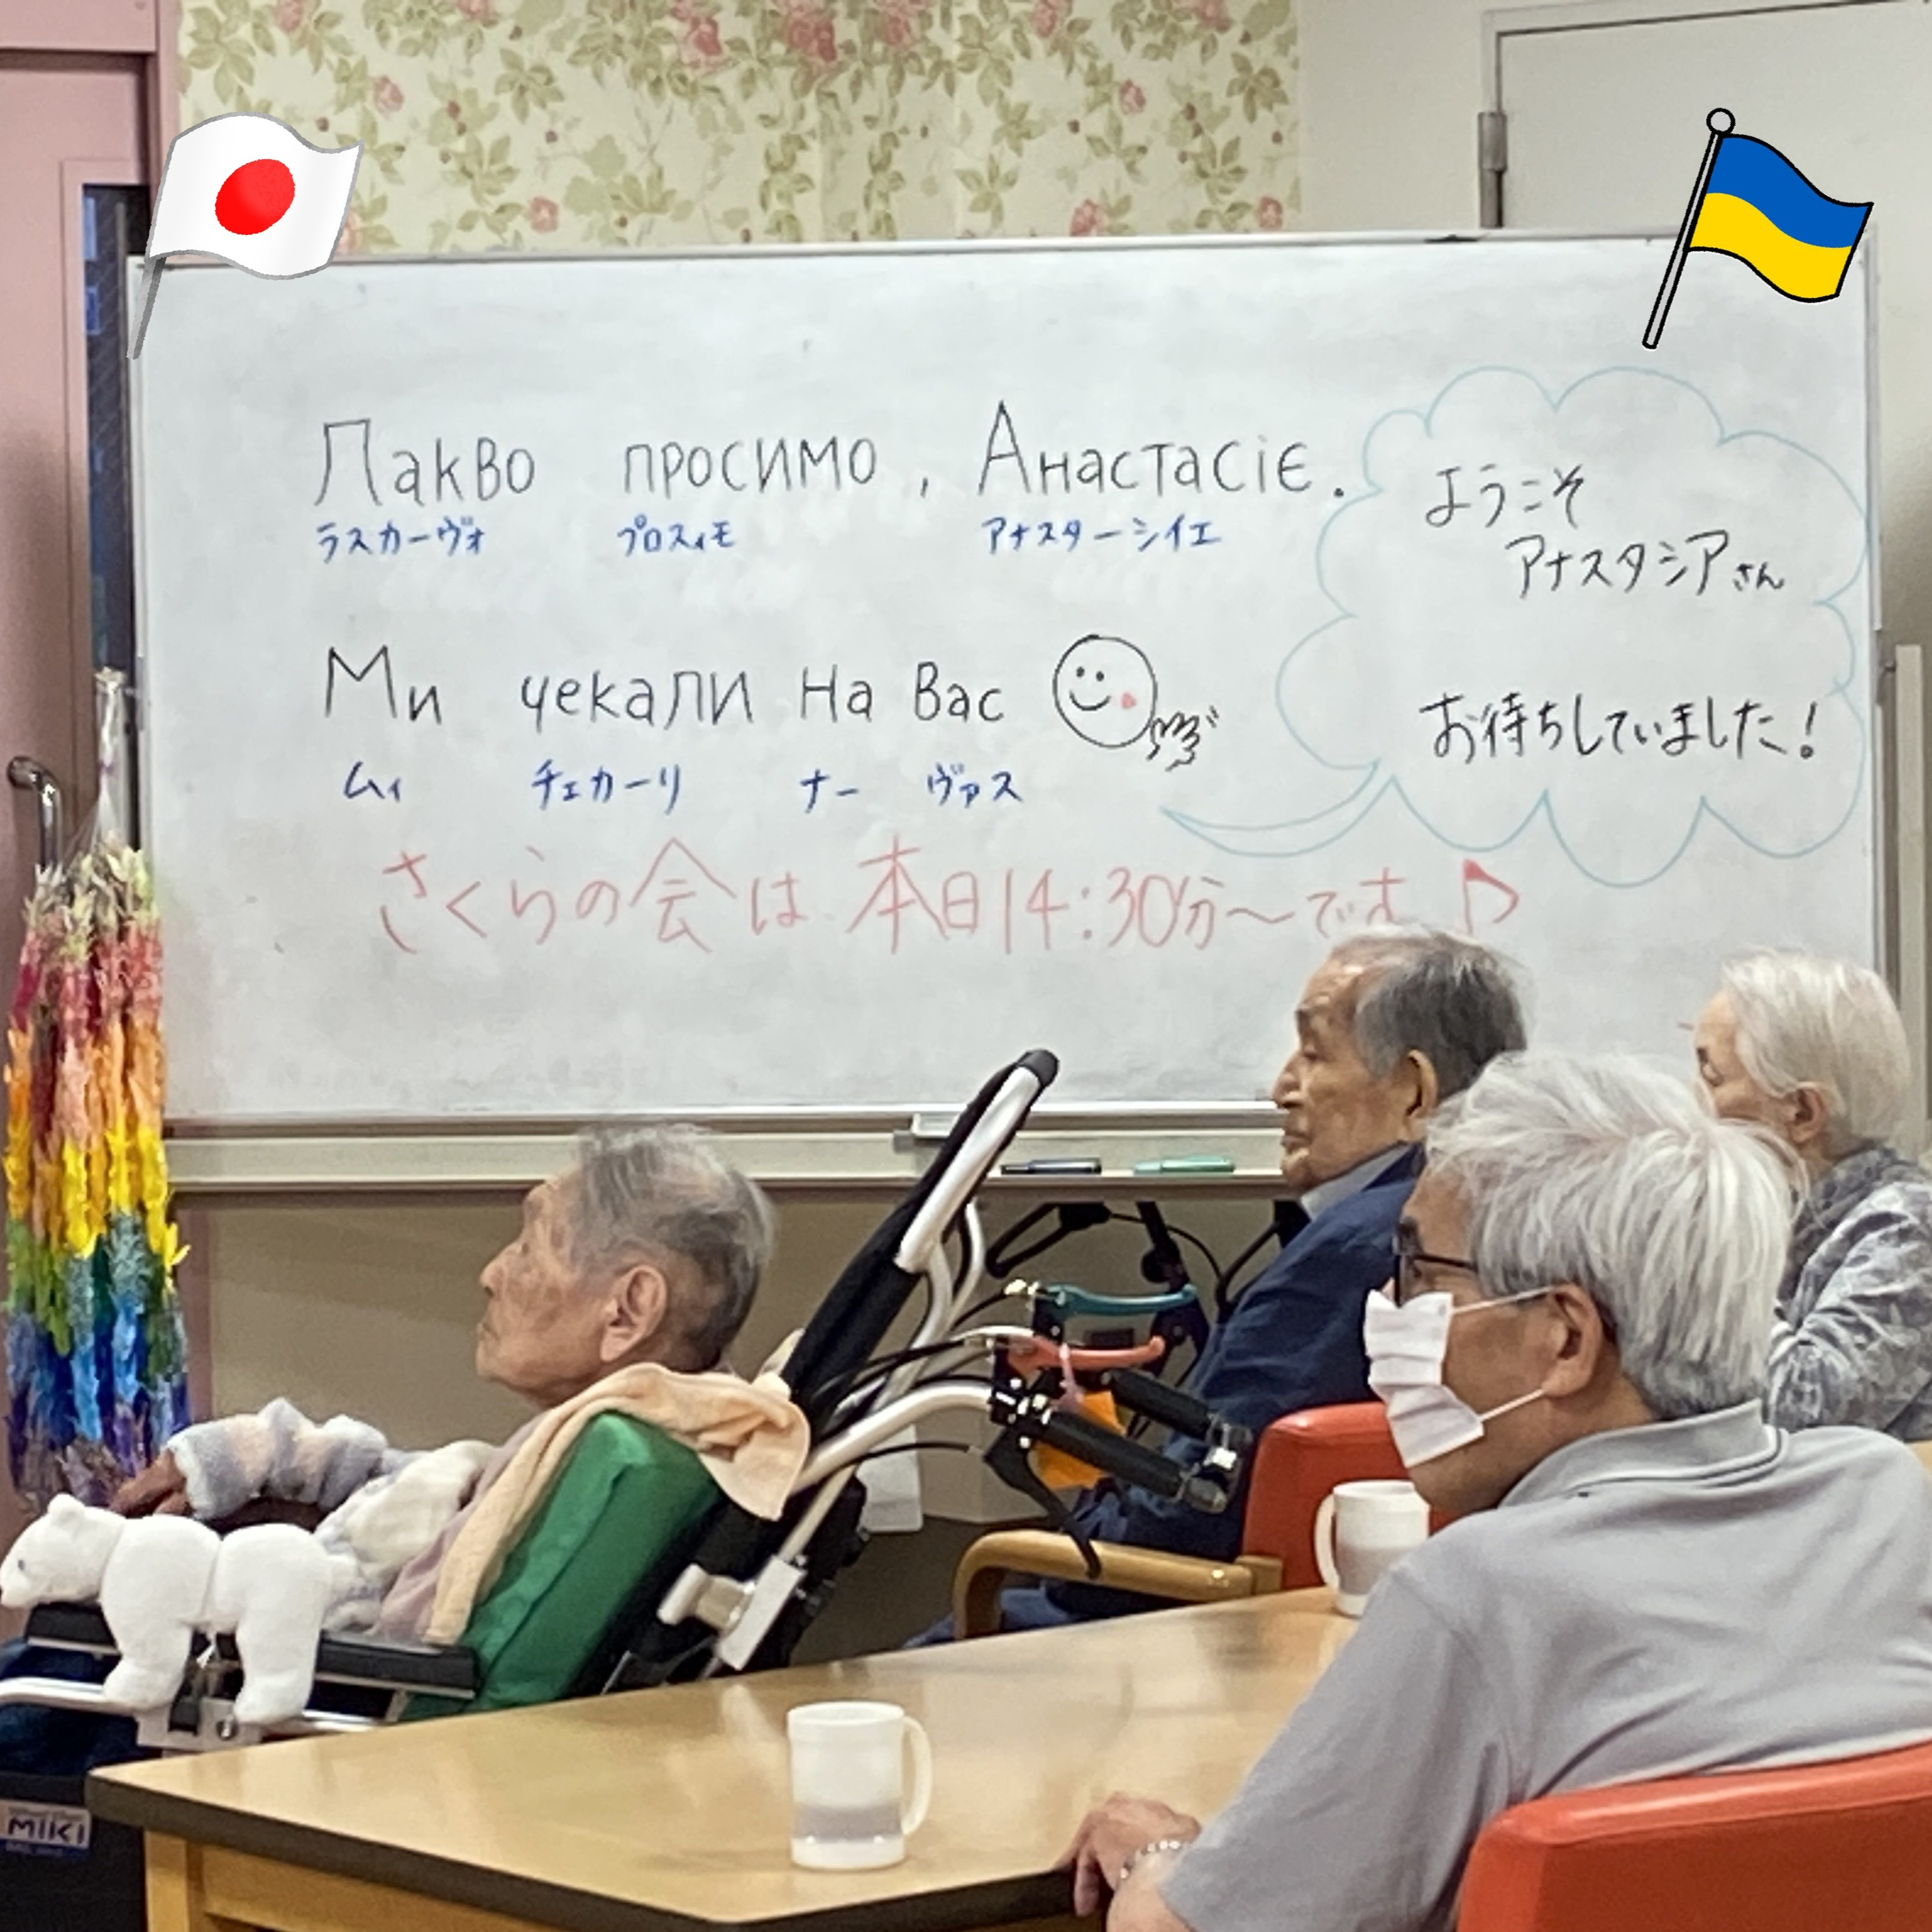 Лакво просимо, Анастасіє.
ラスカーヴォ プロスィモ アナスターシイエ
Ми чекали на Вас
ムィ チェカーリ ナー ヴァス
ようこそ
アナスタシアさん
お待ちしていました!
さくらの会は本日14:30分〜です♪
MiKi